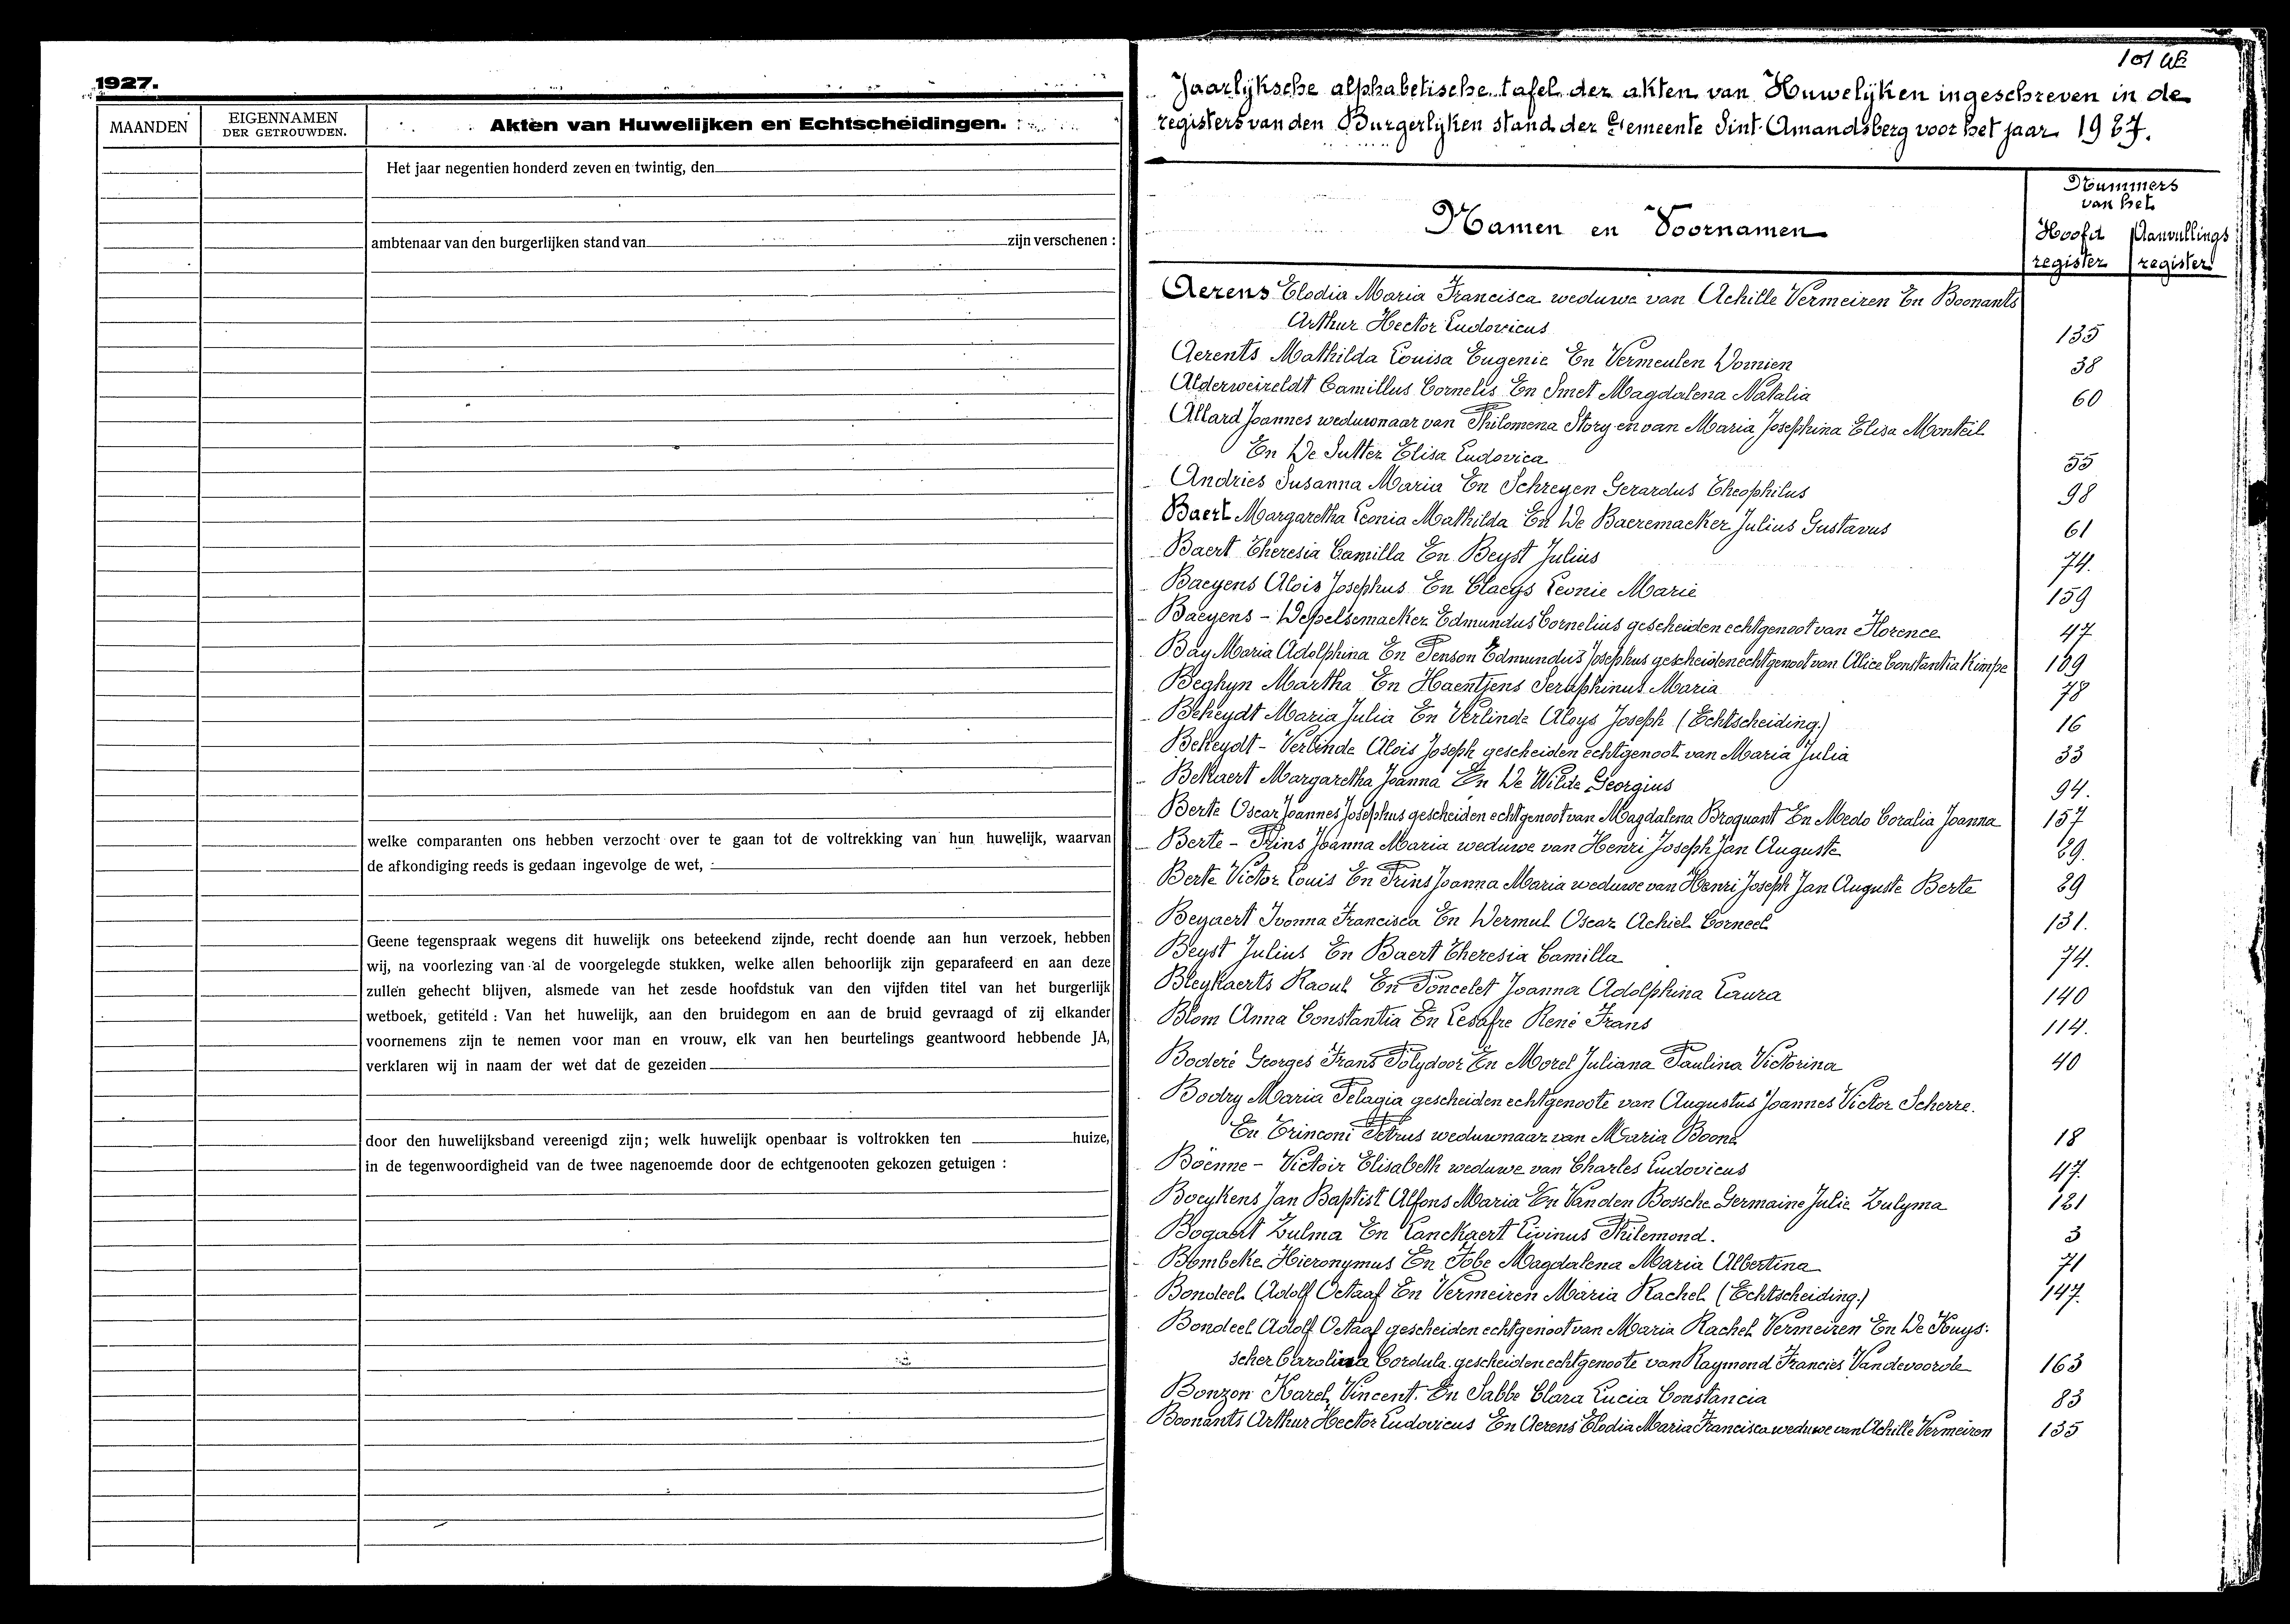 1927.
MAANDEN
EIGENNAMEN
DER GETROUWDEN.
Akten van Huwelijken en Echtscheidingen.
Het jaar negentien honderd zeven en twintig, den
ambtenaar van den burgerlijken stand van zijn verschenen :
welke comparanten ons hebben verzocht over te gaan tot de voltrekking van hun huwelijk, waarvan
de afkondiging reeds is gedaan ingevolge de wet,
Geene tegenspraak wegens dit huwelijk ons beteekend zijnde, recht doende aan hun verzoek, hebben
wij, na voorlezing van al de voorgelegde stukken, welke allen behoorlijk zijn geparafeerd en aan deze
zullen gehecht blijven, alsmede van het zesde hoofdstuk van den vijfden titel van het burgerlijk
wetboek, getiteld : Van het huwelijk, aan den bruidegom en aan de bruid gevraagd of zij elkander
voornemens zijn te nemen voor man en vrouw, elk van hen beurtelings geantwoord hebbende JA,
verklaren wij in naam der wet dat de gezeiden
door den huwelijksband vereenigd zijn; welk huwelijk openbaar is voltrokken ten huize,
in de tegenwoordigheid van de twee nagenoemde door de echtgenooten gekozen getuigen :
Jaarlijksche alphabetische tafel der akten van Huwelijken ingeschreven in de
registers van den Burgerlijken stand der Gemeente Sint-Amandsberg voor het jaar 1927.
Namen en Voornamen
Nummers
van het
Hoofd Aanvullings
register register
Aerens Elodia Maria Francisca weduwe van Achille Vermeiren En Boonants
Arthur Hector Ludovicus 135
Aerents Mathilda Louisa Eugenie En Vermeulen Domien 38
Alderweireldt Camillus Cornelis En Smet Magdalena Natalia 60
Allard Joannes weduwnaar van Philomena Story en van Maria Josephina Elisa Monteil
En De Sutter Elisa Ludovica 55
Andries Susanna Maria En Schreyen Gerardus Theophilus 98
Baert Margaretha Leonia Mathilda En De Baeremaeker Julius Gustavus 61
Baert Theresia Camilla En Beyst Julius 74.
Baeyens Alois Josephus En Claeys Leonie Marie 159
Baeyens - Depelsemaeker Edmundus Cornelius gescheiden echtgenoot van Florence 47
Bay Maria Adolphina En Penson Edmundus Josephus gescheiden echtgenoot van Alice Constantia Kimpe 109
Beghyn Martha En Haentjens Seraphinus Maria 78
Bekeydt Maria Julia En Verlinde Aloys Joseph (Echtscheiding.) 16
Bekeydt - Verlinde Alois Joseph gescheiden echtgenoot van Maria Julia 33
Bekaert Margaretha Joanna En De Wilde Georgius 94.
Berte Oscar Joannes Josephus gescheiden echtgenoot van Magdalena Broquant En Medo Coralia Joanna 157
Berte - Prins Joanna Maria weduwe van Henri Joseph Jan Auguste 29.
Berte Victor Louis En Prins Joanna Maria weduwe van Henri Joseph Jan Auguste Berte 29
Beyaert Ivonna Francisca En Dermul Oscar Achiel Corneel 131.
Beyst Julius En Baert Theresia Camilla 74.
Bleykaerts Raoul En Poncelet Joanna Adolphina Laura 140
Blom Anna Constantia En Lesafre René Frans 114.
Boderé Georges Frans Polydoor En Morel Juliana Paulina Victorina 40
Bodry Maria Pelagia gescheiden echtgenoote van Augustus Joannes Victor Scherre.
En Trinconi Petrus weduwnaar van Maria Boone 18
Böenne - Victoir Elisabeth weduwe van Charles Ludovicus 47.
Boeykens Jan Baptist Alfons Maria En Van den Bossche Germaine Julie Zulyma 121
Bogaert Zulma En Lanckaert Livinus Philemond. 3
Bombeke Hieronymus En Tobe Magdalena Maria Albertina 71
Bondeel Adolf Octaaf En Vermeiren Maria Rachel (Echtscheiding.) 147.
Bondeel Adolf Octaaf gescheiden echtgenoot van Maria Rachel Vermeiren En De Kuys-
scher Carolina Cordula gescheiden echtgenoote van Raymond Francies Vandevoorde 163
Bonzon Karel Vincent. En Sabbe Clara Lucia Constancia 83
Boonants Arthur Hector Ludovicus En Aerens Elodia Maria Francisca weduwe van Achille Vermeiren 135